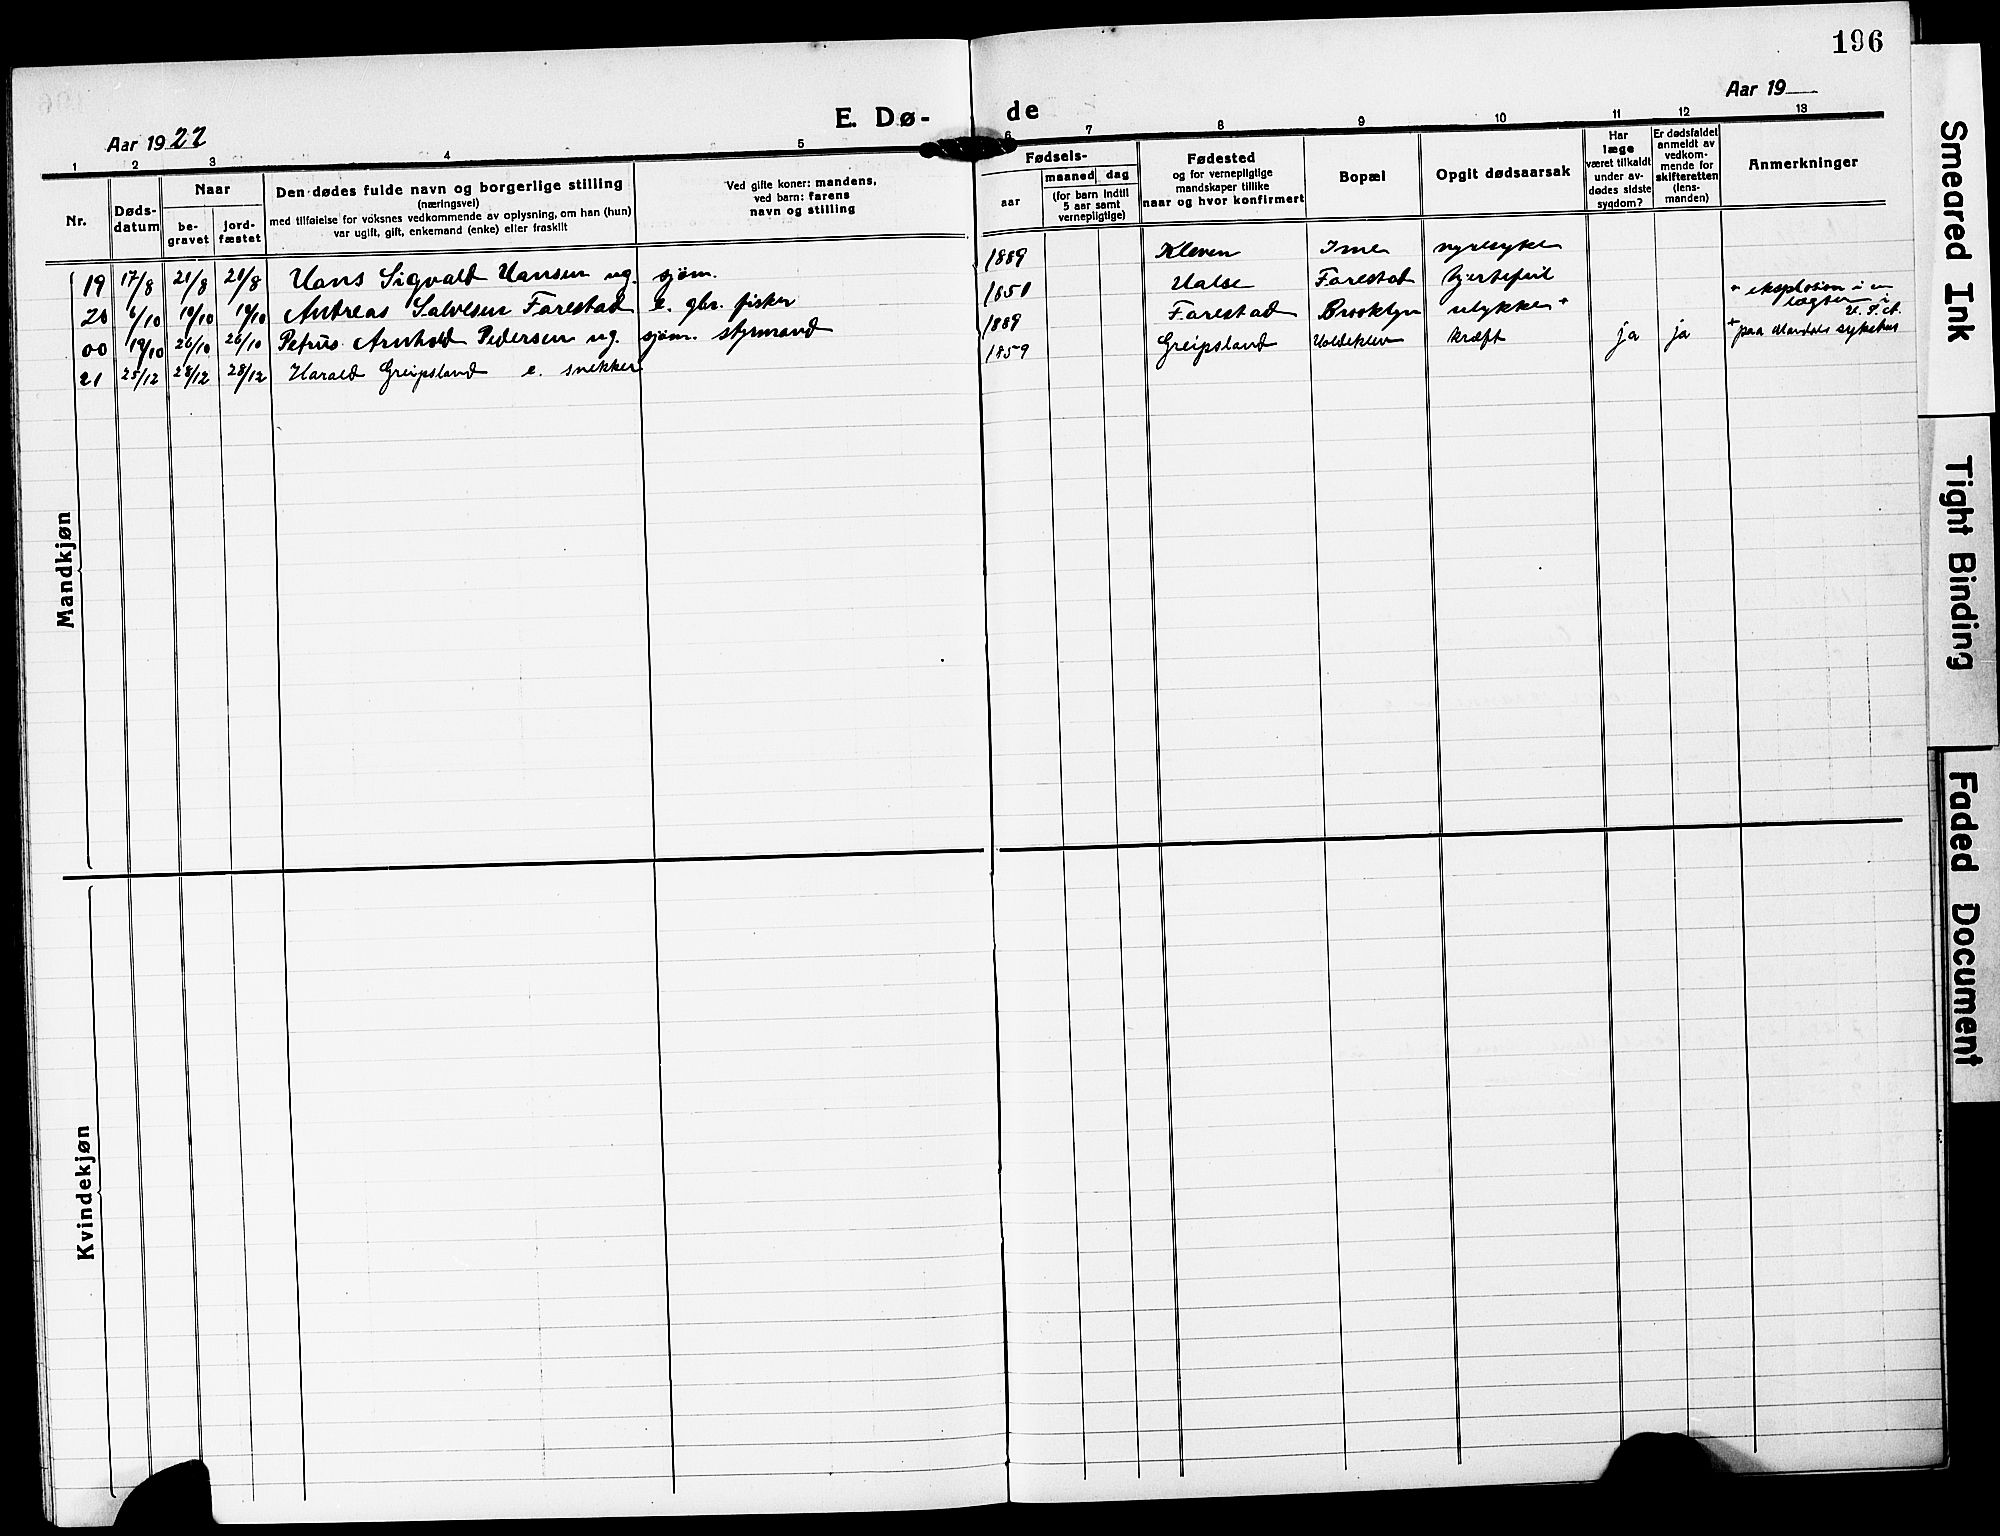 196
E. Dø-
de
Aar 1922
Aar 19
1 2 3 4 5 6 7 8 9 10 11 12 13
Nr.
Døds-
datum
Naar
be-
gravet
jord-
fæstet
Den dødes fulde navn og borgerlige stilling
(næringsvei)
med tilføielse for voksnes vedkommende av oplysning, om han (hun)
var ugift, gift, enkemand (enke) eller fraskilt
Ved gifte koner: mandens,
ved barn: farens
navn og stilling
Fødsels-
aar
maaned dag
(for barn indtil
5 aar samt
vernepligtige)
Fødested
og for vernepligtige
mandskaper tillike
naar og hvor konfirmert
Bopæl
Opgit dødsaarsak
Har
læge
været tilkaldt
under av-
dødes sidste
sygdom?
Er dødsfaldet
anmeldt av
vedkom-
mende for
skifteretten
(lens-
manden)
Anmerkninger
Mandkjøn
19 17/8 21/8 21/8 Hans Sigvald Hansen ug. sjøm. 1889 Kleven Ime nyresyke
20 6/10 10/10 10/10 Andreas Salvesen Farestad e. gbr. fisker 1851 Halse Farestad hjertefeil
00 19/10 26/10 26/10 Petrus Arnhold Pedersen ug. sjøm. styrmand 1889 Farestad Brooklyn ulykke + + eksplosion i en
lægter i
U. S. A.
21 25/12 28/12 28/12 Harald Greipsland e. snekker 1859 Greipsland Holdeklev kræft ja ja + paa Mandals sykehus
Kvindekjøn
Smeared Ink
Tight Binding
Faded Document